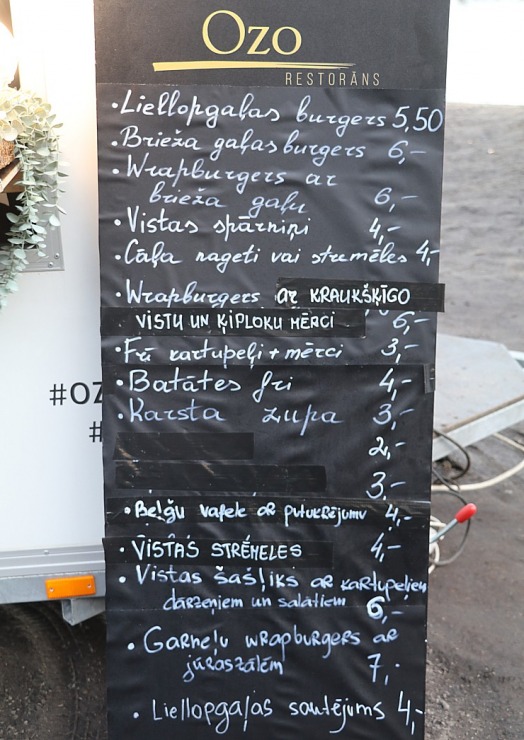 Ozo
RESTORĀNS
• Liellopgaļas burgers 5,50
• Brieža gaļas burgers 6,-
• Wrapburgers ar
brieža gaļu 6,-
• Vistas spārniņi 4,-
• Cāļa nageti vai strēmeles 4,-
• Wrapburgers ar KRAUKŠĶĪGO
VISTU UN ĶIPLOKU MĒRCI 6,-
• Frī kartupeļi + mērci 3,-
• Batātes frī 4,-
• Karsta zupa 3,-
2,-
3,-
• Beļģu vafele ar putukrējumu 4,-
• VISTAS STRĒMELES 4,-
• Vistas šašļiks ar kartupeļiem
dārzeņiem un salātiem 6,-
• Garneļu wrapburgers ar
jūraszālēm 7,-
• Liellopgaļas sautējums 4,-
#OZ
#